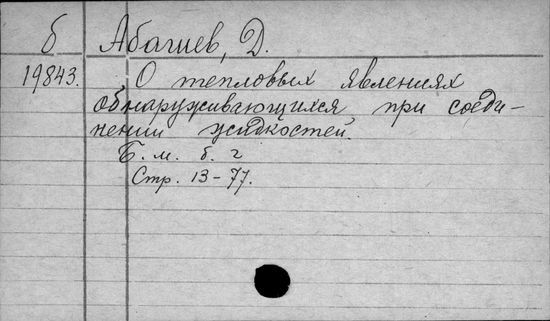 б Абашев, Д.
19843. О тепловых явлениях
обнаруживающихся при соеди-
нении жидкостей.
Б. м. б. г
Стр. 13-77.